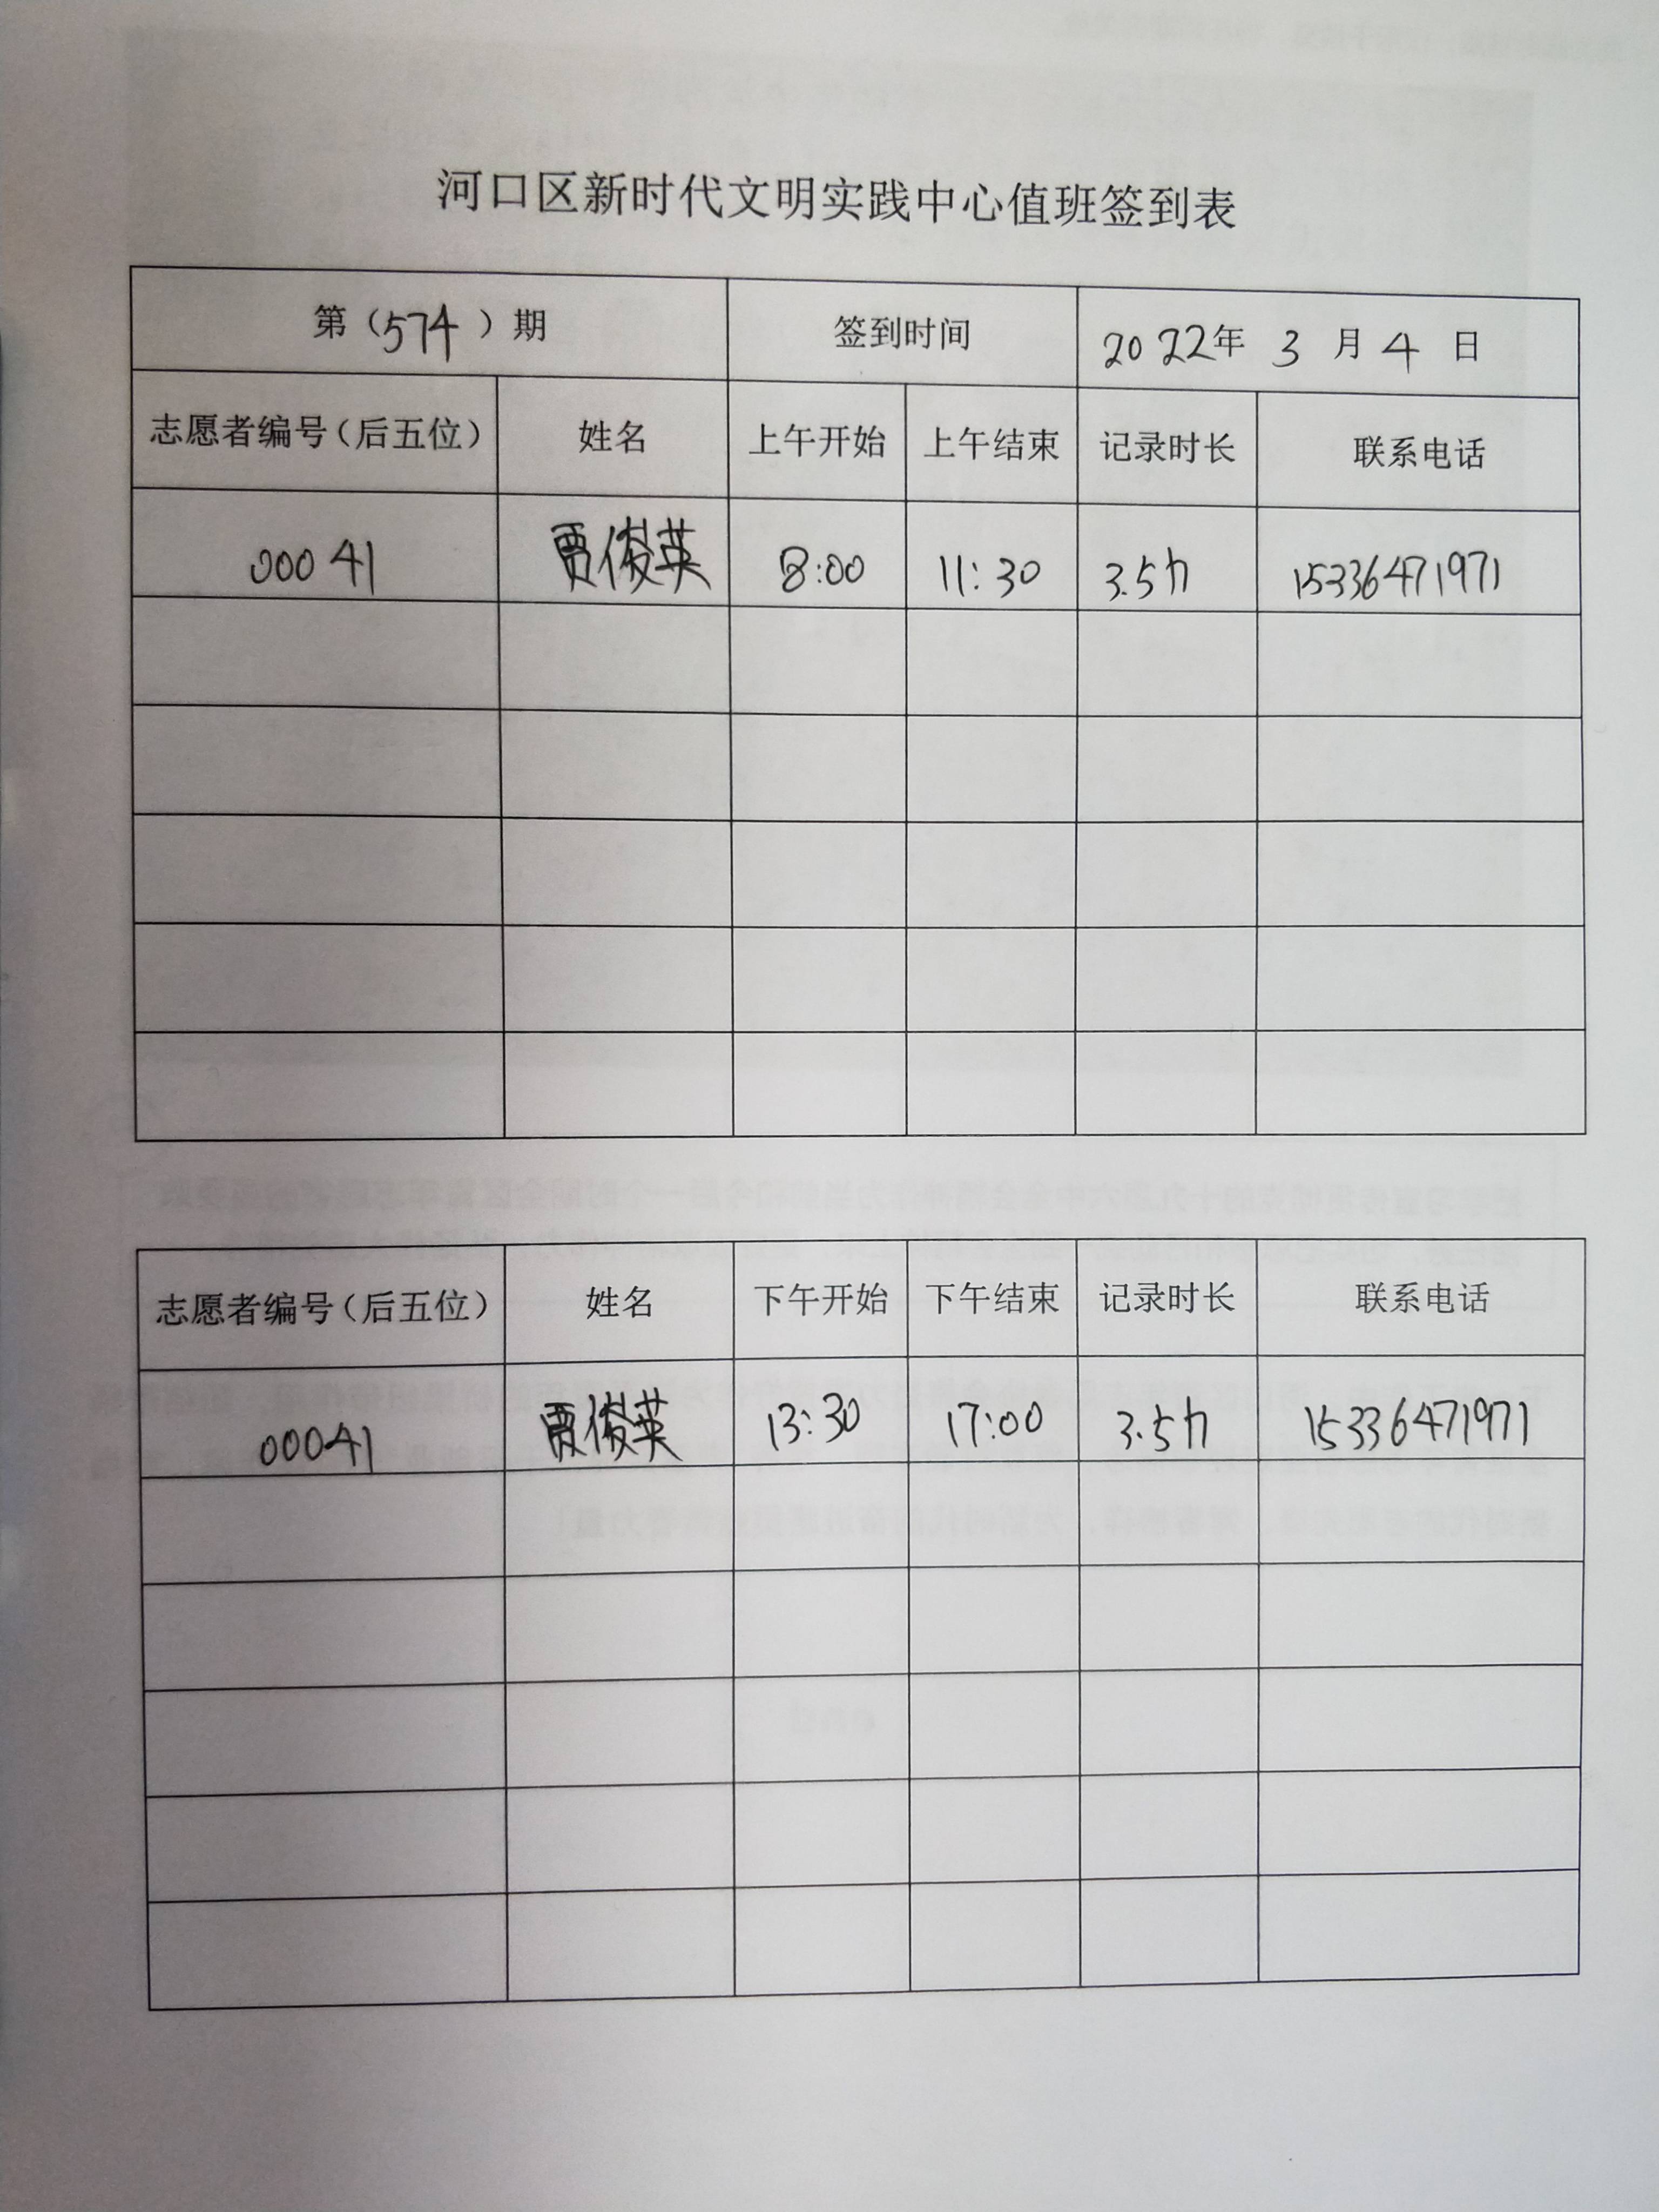 河口区新时代文明实践中心值班签到表
第（574）期 签到时间 2022年 3 月 4 日
志愿者编号（后五位） 姓名 上午开始 上午结束 记录时长 联系电话
00041 贾俊英 8:00 11:30 3.5h 15336471971
志愿者编号（后五位） 姓名 下午开始 下午结束 记录时长 联系电话
00041 贾俊英 13:30 17:00 3.5h 15336471971